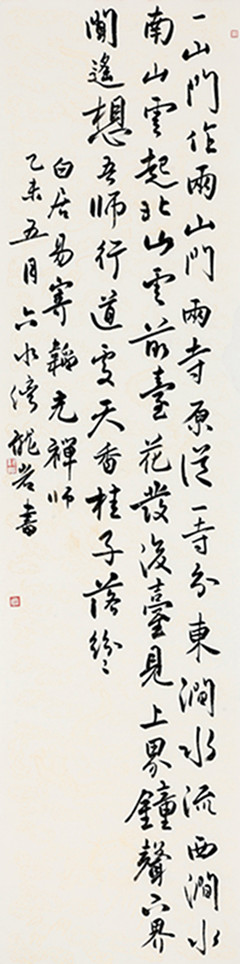 一山門作兩山門兩寺原從一寺分東澗水流西澗水
南山雲起北山雲前臺花發後臺見上界鐘聲下界
聞遙想吾師行道處天香桂子落紛〻
白居易寄韜光禪師
乙未五月六水灣龍岩書